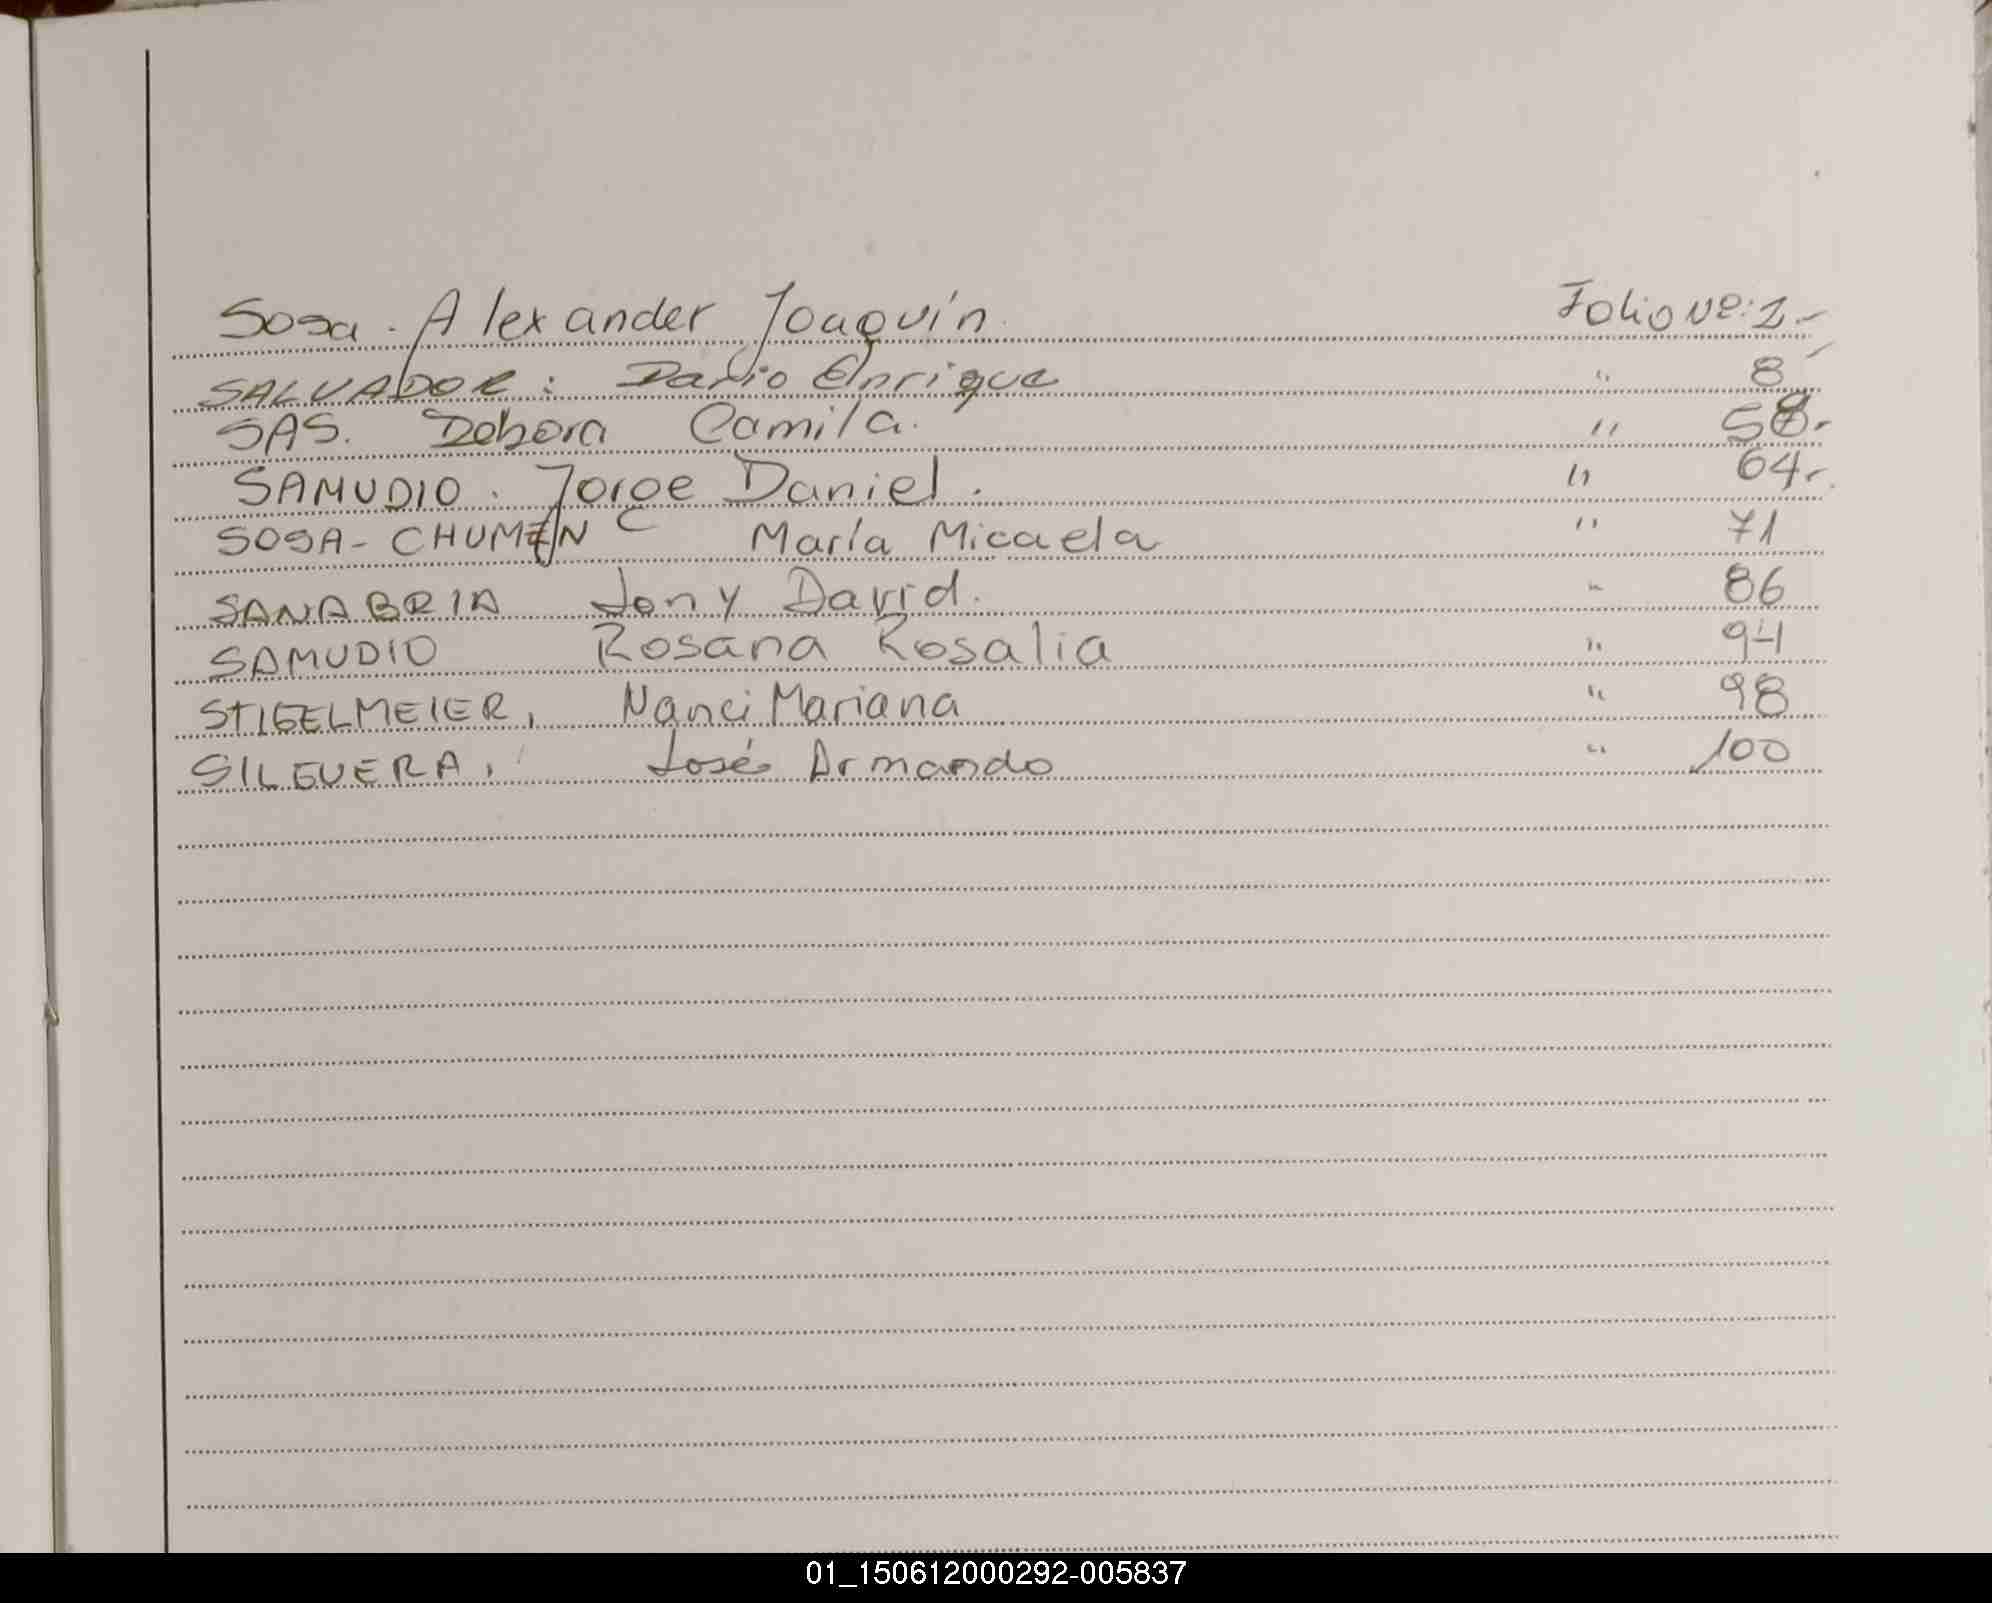 Sosa. Alexander Joaquín. Folio Nº: 1.-
SALVADOR: Dario Enrique " 8
SAS. Debora Camila. " 58.
SAMUDIO. Jorge Daniel. " 64.
SOSA - CHUMEN María Micaela " 71
SANABRIA Jony David. " 86
SAMUDIO Rosana Rosalia " 94
STIGELMEIER, Nanci Mariana " 98
SILGUERA, José Armando " 100
01_150612000292-005837